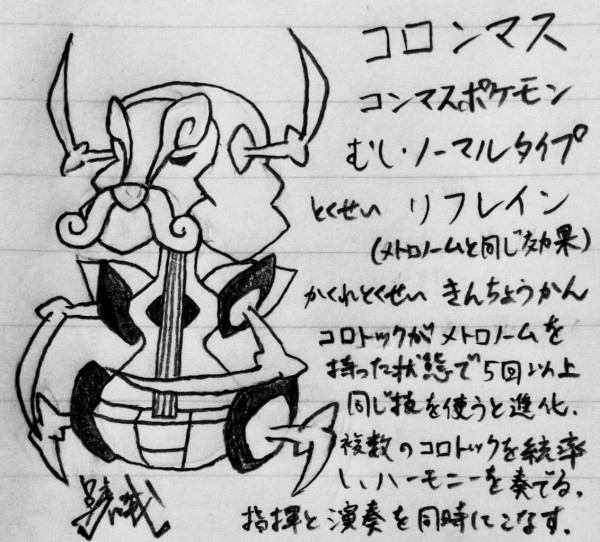 コロンマス
コンマスポケモン
むし・ノーマルタイプ
とくせい リフレイン
(メトロノームと同じ効果)
かくれとくせい きんちょうかん
コロトックがメトロノームを
持った状態で5回以上
同じ技を使うと進化.
複数のコロトックを統率
し、ハーモニーを奏でる.
指揮と演奏を同時にこなす.